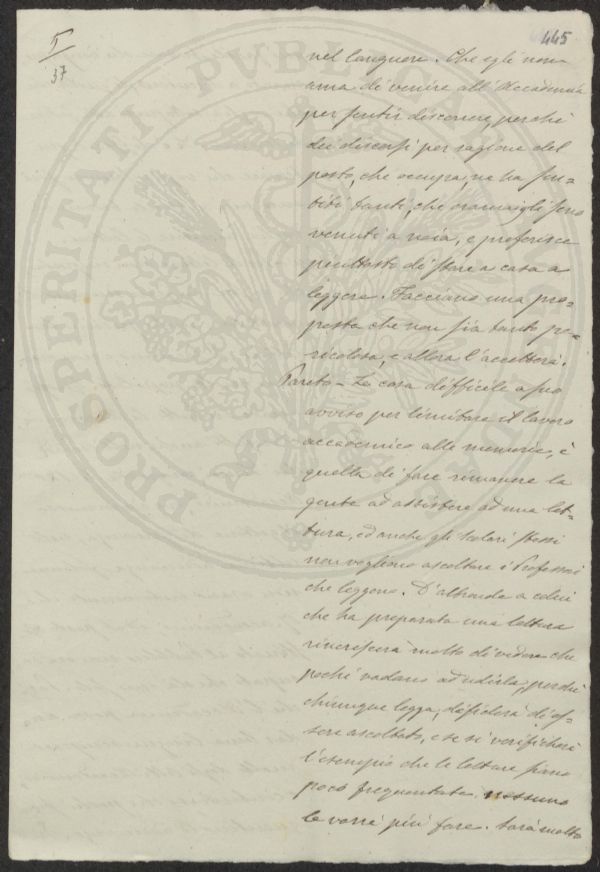 I
37
445
PROSPERITATI PVBLICAE
nel languore. Che egli non
ama di venire all'Accademia
per sentir discorrere, perchè
dei discorsi per ragione del
posto, che occupa, ne ha su=
biti tanti, che oramai gli sono
venuti a noia, e preferisce
piuttosto di stare a casa a
leggere. Facciano una pro=
posta che non sia tanto pe=
ricolosa, e allora l'accetterà.
Pareto - La cosa difficile a suo
avviso per limitare il lavoro
accademico alle memorie, è
quella di fare rimanere la
gente ad assistere ad una let=
tura, ed anche gli scolari stessi
non vogliono ascoltare i Professori
che leggono. D'altronde a colui
che ha preparato una lettura
rincrescerà molto di vedere che
pochi vadano ad udirla, perchè
chiunque legga, desidera di es=
sere ascoltato, e se si verificherà
l'esempio che le letture siano
poco frequentate nessuno
le vorrà più fare. Sarà molto